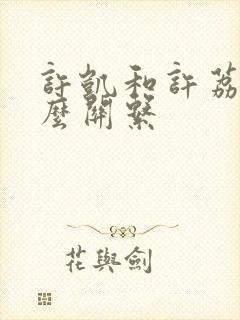 許凱和許荔
麼關繫
花與劍